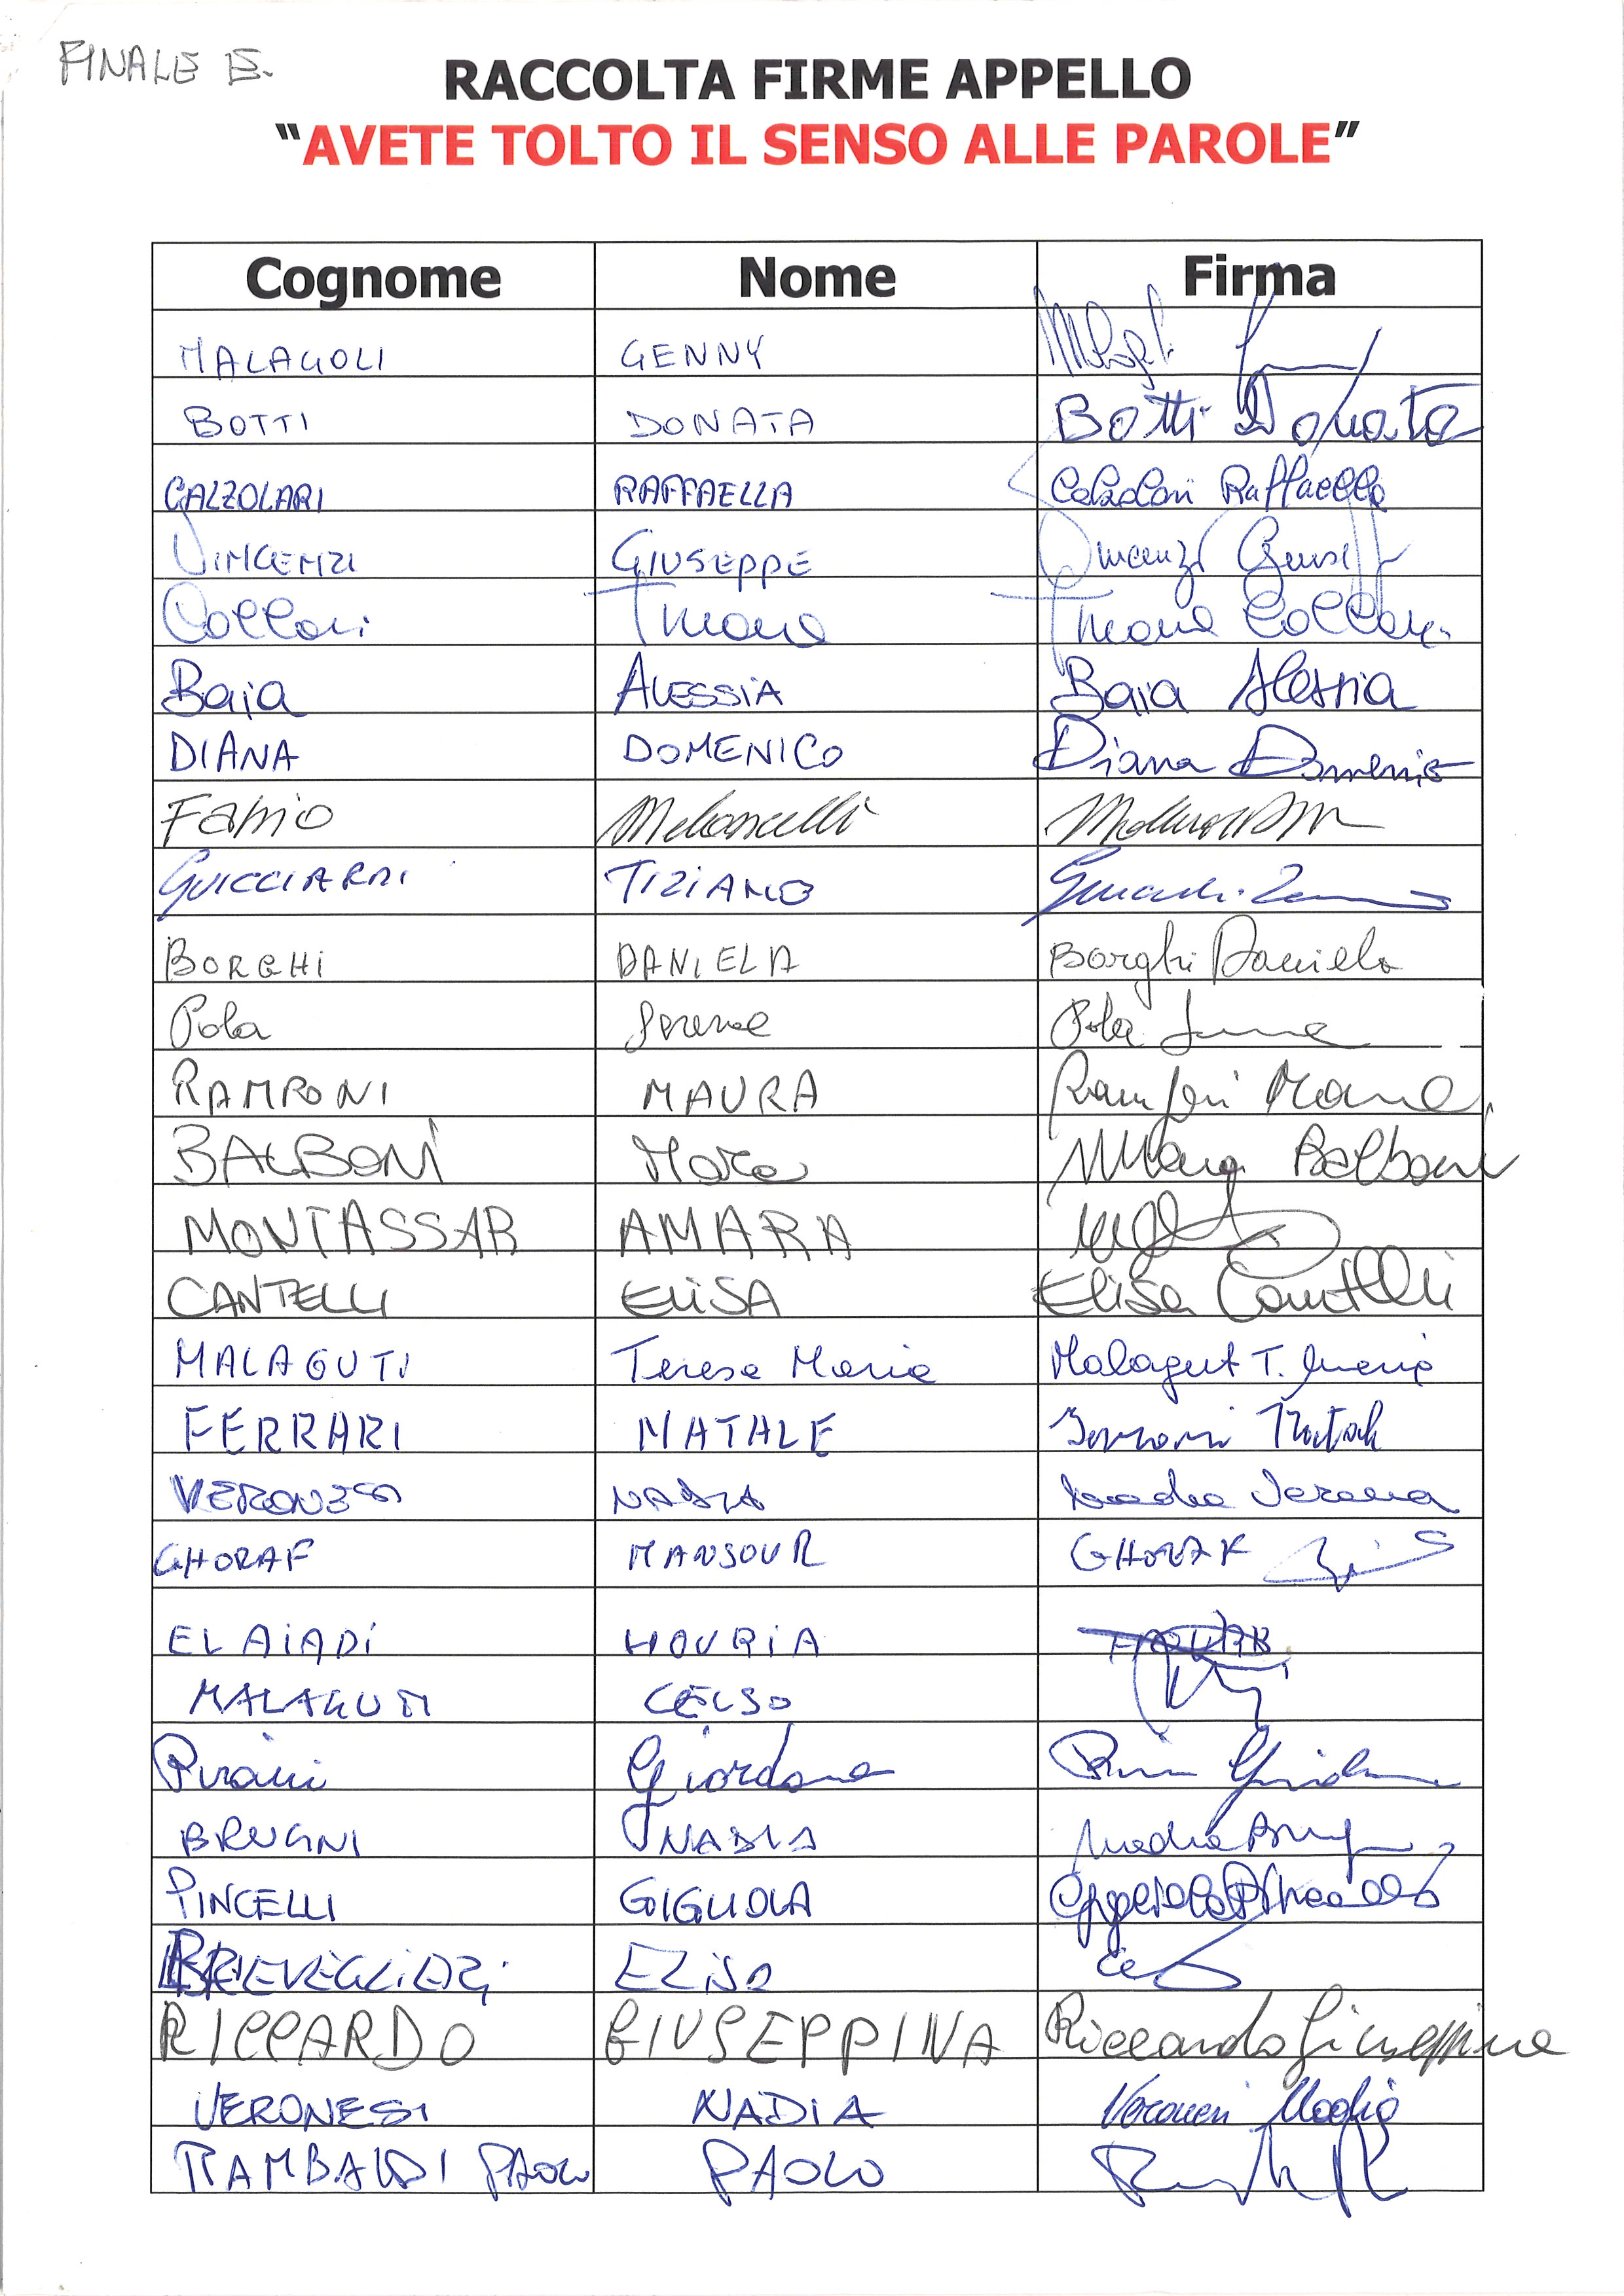 FINALE E.
RACCOLTA FIRME APPELLO
“AVETE TOLTO IL SENSO ALLE PAROLE”
Cognome Nome Firma
MALAGOLI GENNY
BOTTI DONATA Botti Donata
CALZOLARI RAFFAELLA Calzolari Raffaella
VINCENZI GIUSEPPE Vincenzi
Collari Tiziana Tiziana Collari
Baia ALESSIA Baia Alessia
DIANA DOMENICO Diana Domenico
FABIO Meloncelli
GUICCIARDI TIZIANO
BORGHI DANIELA Borghi Daniela
Pola Serena Pola Serena
RAMPONI MAURA Ramponi Maura
BALBONI Mara Mara Balboni
MONTASSAR AMARA
CANTELLI ELISA Elisa Cantelli
MALAGUTI Teresa Maria Malaguti T. Maria
FERRARI NATALE Ferrari Natale
VERONESI NADIA Nadia
GHORAF MANSOUR GHORAF
EL AIADI HOURIA
MALAGUTI CELSO
Pirani Giordana
BRUGNI NADIA Nadia
PINCELLI GIGLIOLA
BREVEGLIERI ELISA
RICCARDO GIUSEPPINA Riccardo Giuseppina
VERONESI NADIA Veronesi Nadia
RAMBALDI PAOLO PAOLO